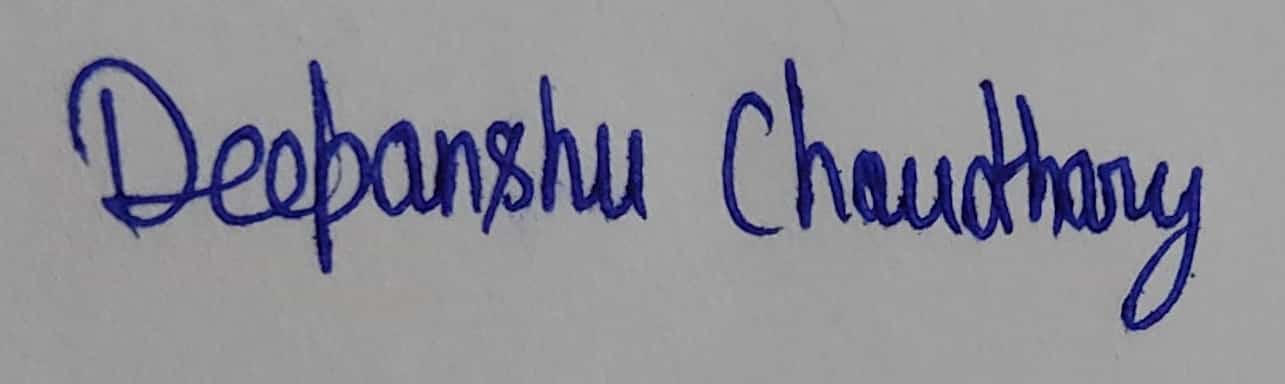 Deepanshu Chaudhary